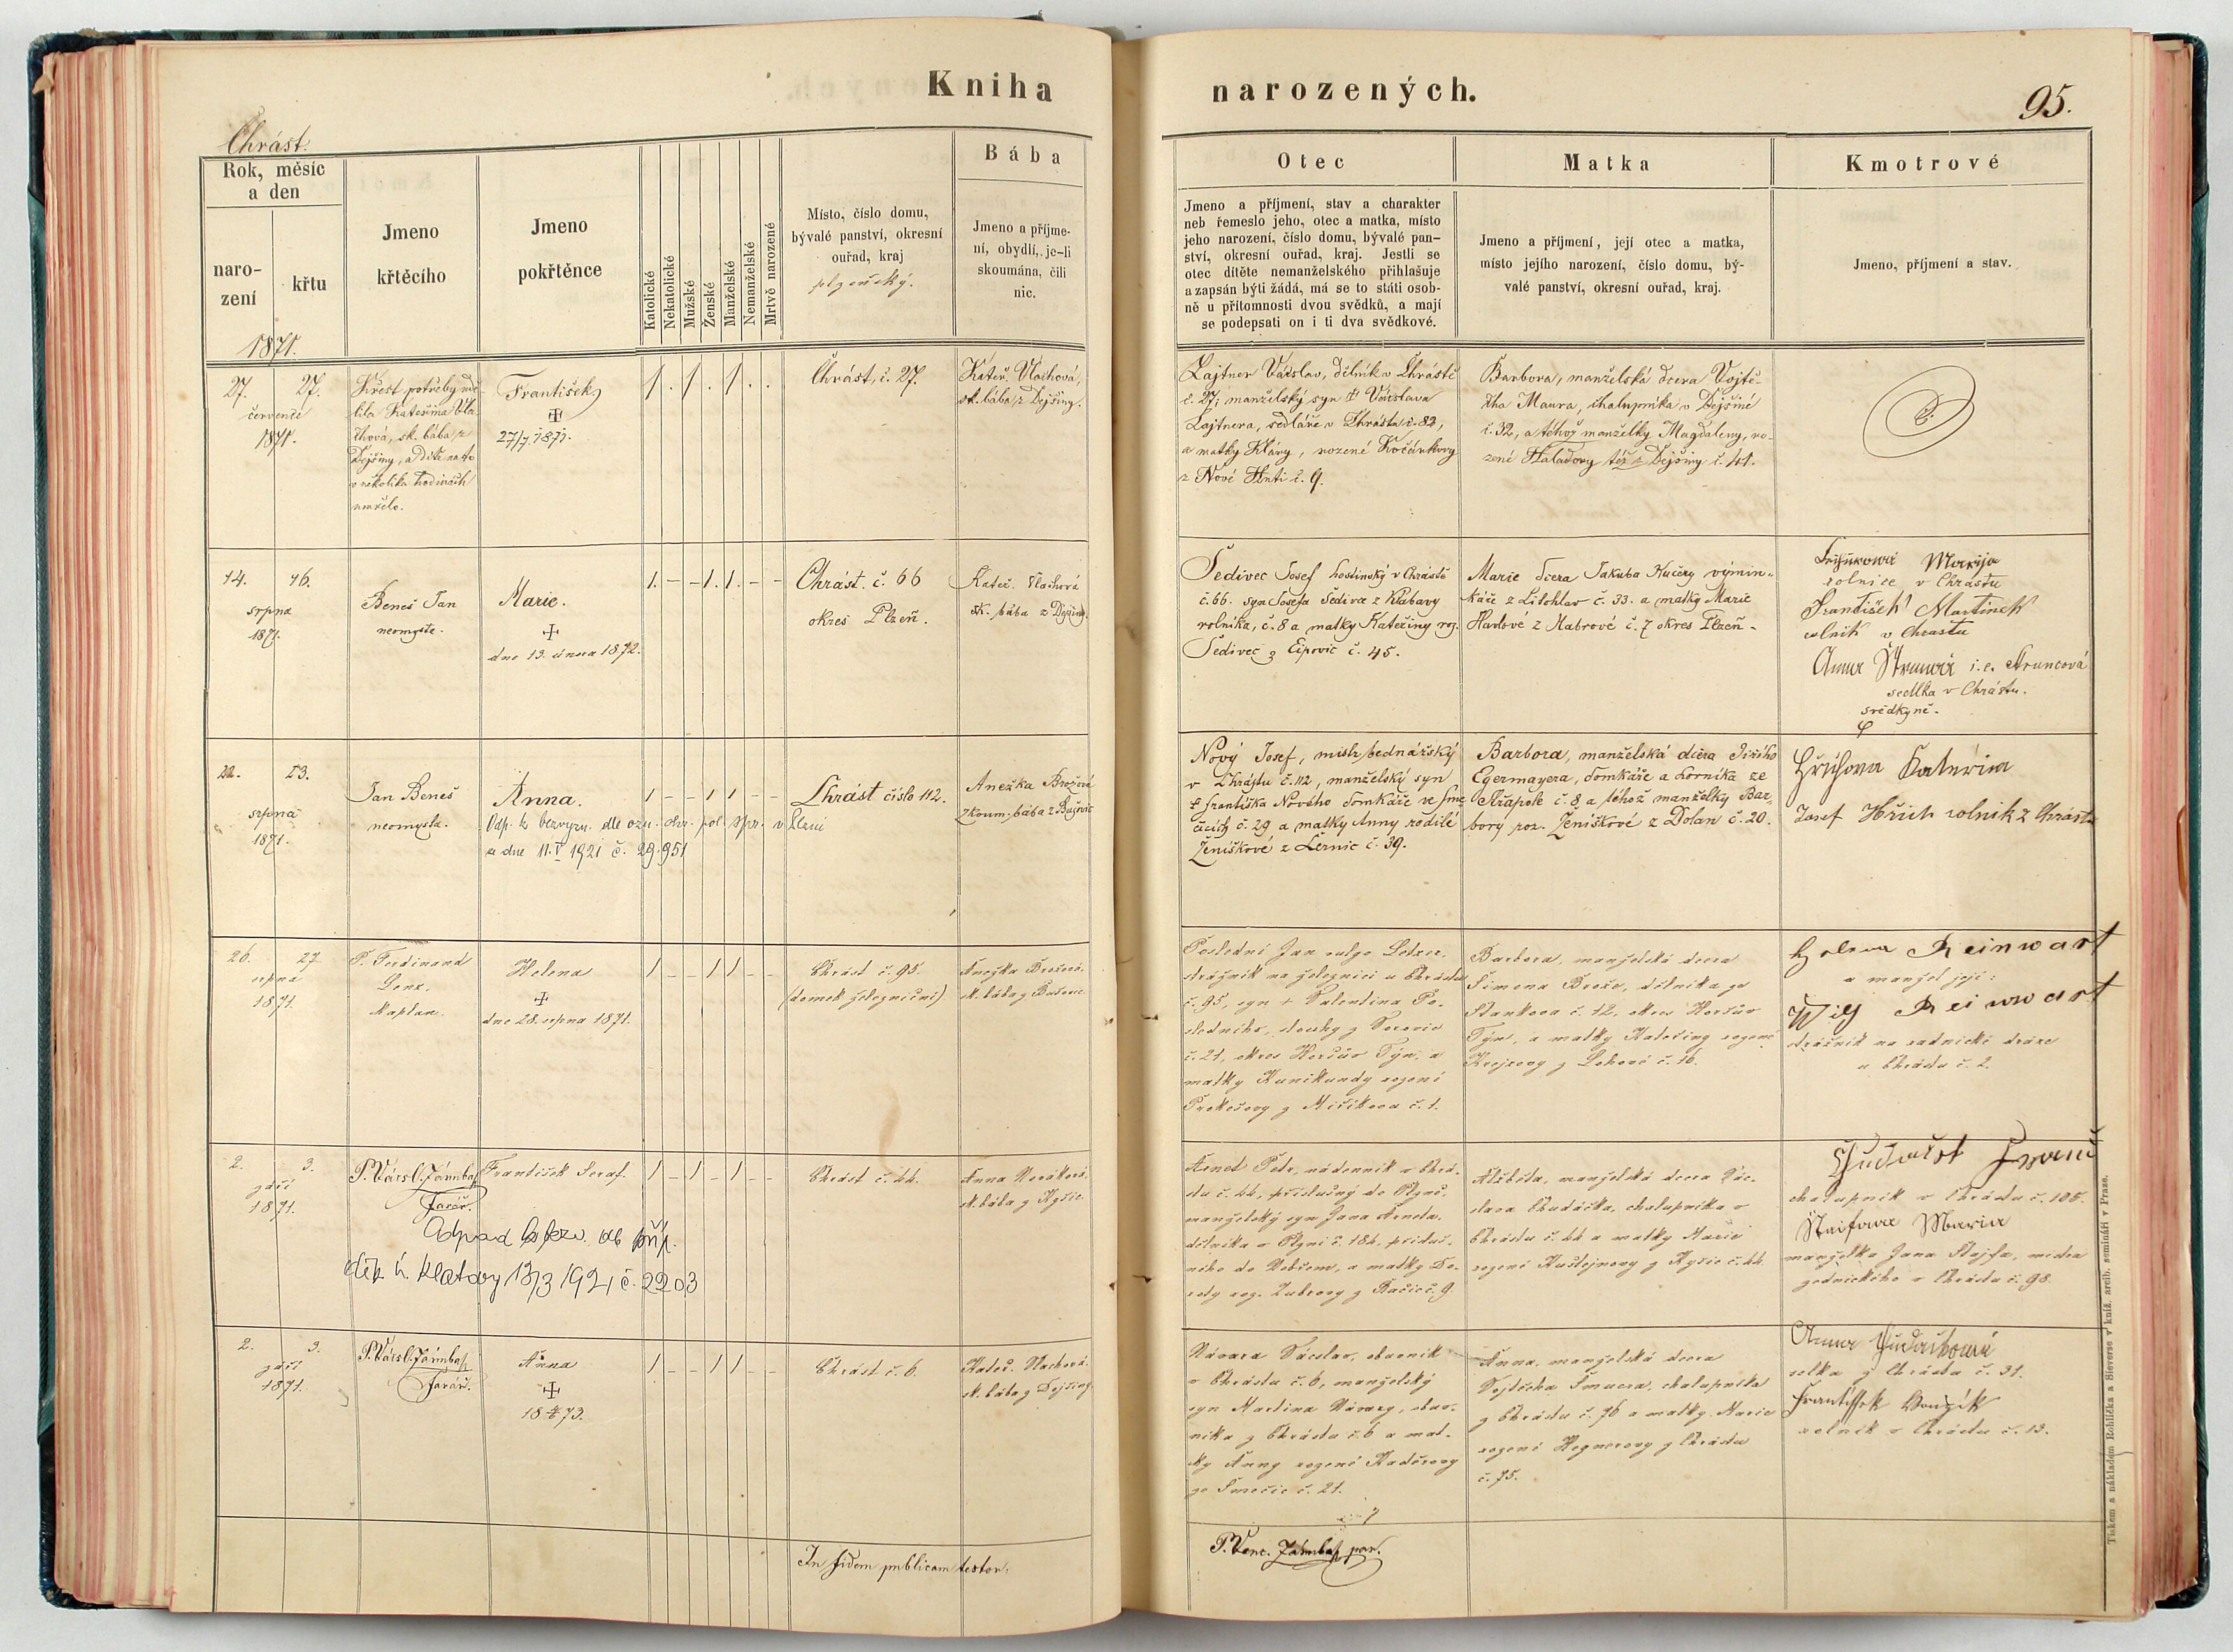 Kniha
narozených.
95.
Chrást.
Rok, měsíc
a den
naro-
zení
křtu
1871.
Jmeno
křtěcího
Jmeno
pokřtěnce
Katolické
Nekatolické
Mužské
Ženské
Manželské
Nemanželské
Mrtvě narozené
Místo, číslo domu,
bývalé panství, okresní
ouřad, kraj
plzeňský.
Bába
Jmeno a příjme-
ní, obydlí, je-li
skoumána, čili
nic.
Otec
Jmeno a příjmení, stav a charakter
neb řemeslo jeho, otec a matka, místo
jeho narození, číslo domu, bývalé pan-
ství, okresní ouřad, kraj. Jestli se
otec dítěte nemanželského přihlašuje
a zapsán býti žádá, má se to státi osob-
ně u přítomnosti dvou svědků, a mají
se podepsati on i ti dva svědkové.
Matka
Jmeno a příjmení, její otec a matka,
místo jejího narození, číslo domu, bý-
valé panství, okresní ouřad, kraj.
Kmotrové
Jmeno, příjmení a stav.
27. 27.
července
1871.
Křest potřeby udě-
lila Kateřina Vla-
chová, sk. bába z
Dejšiny, a dítě na to
v několika hodinách
umřelo.
František
27/7. 1871.
1 . 1 . 1 . .
Chrást, č. 27.
Kateř. Vlachová,
sk. bába z Dejšiny.
Lajtner Václav, dělník v Chrástě
č. 27, manželský syn † Václava
Lajtnera, sedláře v Chrástu č. 82,
a matky Kláry, rozené Kočánkovy
z Nové Huti č. 9.
Barbora, manželská dcera Vojtě-
cha Maura, chalupníka v Dejšině
č. 32, a téhož manželky Magdaleny, ro-
zené Haladovy též z Dejšiny č. 41.
14. 16.
srpna
1871.
Beneš Jan
neomysta.
Marie.
dne 13. února 1872.
1. – – 1. 1. – –
Chrást. č. 66
okres Plzeň.
Kateř. Vlachová
sk. bába z Dejšiny.
Šedivec Josef hostinský v Chrástě
č. 66. syn Josefa Šedivce z Klabavy
rolníka, č. 8 a matky Kateřiny roz.
Šedivec z Ejpovic č. 45.
Marie dcera Jakuba Kučery výmin-
káře z Litohlav č. 33. a matky Marie
Havlové z Habrové č. 7 okres Plzeň –
Marija
rolnice v Chrástu
František Martínek
rolník v Chrastu
Anna Štrunová i. e. Struncová
sedlka v Chrástu.
svědkyně.
22. 23.
srpna
1871.
Jan Beneš
neomysta.
Anna.
Odp. k bezvyzn. dle ozn. okr. pol. spr. v Plzni
ze dne 11. V 1921 č. 29.951
1 – – 1 1 – –
Chrást číslo 112.
Anežka Brožová
zkoum. bába z Bušovic
Nový Josef, mistr bednářský
v Chrástu č. 112, manželský syn
† Františka Nového domkáře ve Sme-
čicích č. 29 a matky Anny rodilé
Ženíškové z Černic č. 39.
Barbora, manželská dcera Jiřího
Egermayera, domkáře a horníka ze
Střapole č. 8, a téhož manželky Bar-
bory roz. Ženíškové z Dolan č. 20.
Hřichova Kateřina
Josef Hřich rolník z Chrástu
26. 27
srpna
1871.
P. Ferdinand
Lenz.
kaplan.
Helena
dne 28. srpna 1871.
1 – – 1 1 – –
Chrást č. 95.
(domek železniční)
Anežka Brožová.
sk. bába z Bušovic
Poslední Jan vulgo Letzer.
strážník na železnici u Chrástu
č. 95, syn † Valentina Po-
sledního, slouhy z Semovic
č. 21, okres Horšův Týn. a
matky Kunikundy rozené
Prokešovy z Miřikova č. 1.
Barbora, manželská dcera
Šimona Brože, dělníka ze
Stankova č. 12, okres Horšův
Týn, a matky Kateřiny rozené
Krejzovy z Lohové č. 16.
Helena Reinwart
a manžel její:
Reinwart
strážník na radnické dráze
u Chrástu č. 2.
2. 3.
září
1871.
P. Václ. Jámbap
Farář.
František Seraf.
Odpad k bezv. ozn. příp.
děk. ú. Klatovy 13/3 1921 č. 2203
1 – 1 – 1 – –
Chrást č. 44.
Anna Nováková.
sk. bába z Kyšic
Arnet Petr, nádenník v Chrá-
stu č. 44, příslušný do Plzně,
manželský syn Jana Arneta,
dělníka v Plzni č. 184, přísluš-
ného do Vobřem, a matky Do-
roty roz. Zubrovy z Bačic č. 9.
Alžběta, manželská dcera Vác-
slava Chudáčka, chalupníka v
Chrástu č. 44 a matky Marie
rozené Kuštejnovy z Kyšic č. 44.
chalupník v Chrástu č. 105.
Štaifova Maria
manželka Jana Štajfa, mistra
zednického v Chrástu č. 98.
2. 3.
září
1871.
P. Václ. Jámbap
Farář.
Anna
18 73.
1 – – 1 1 – –
Chrást č. 6.
Kateř. Vlachová.
sk. bába z Dejšiny
Návara Václav, obuvník
v Chrástu č. 6, manželský
syn Martina Návary, obuv-
níka z Chrástu č. 6 a mat-
ky Anny rozené Kadeřovy
ze Smečic č. 21.
Anna, manželská dcera
Vojtěcha Šmucra, chalupníka
z Chrástu č. 76 a matky Marie
rozené Wegnerovy z Chrástu
č. 75.
Anna
selka z Chrástu č. 31.
Frantíſſek Vouzík
rolník v Chrástu č. 13.
In fidem publicam testor.
P. Venc. Jámbap par.
Tiskem a nákladem Rohlíčka a Sieverse v kníž. arcib. semináři v Praze.